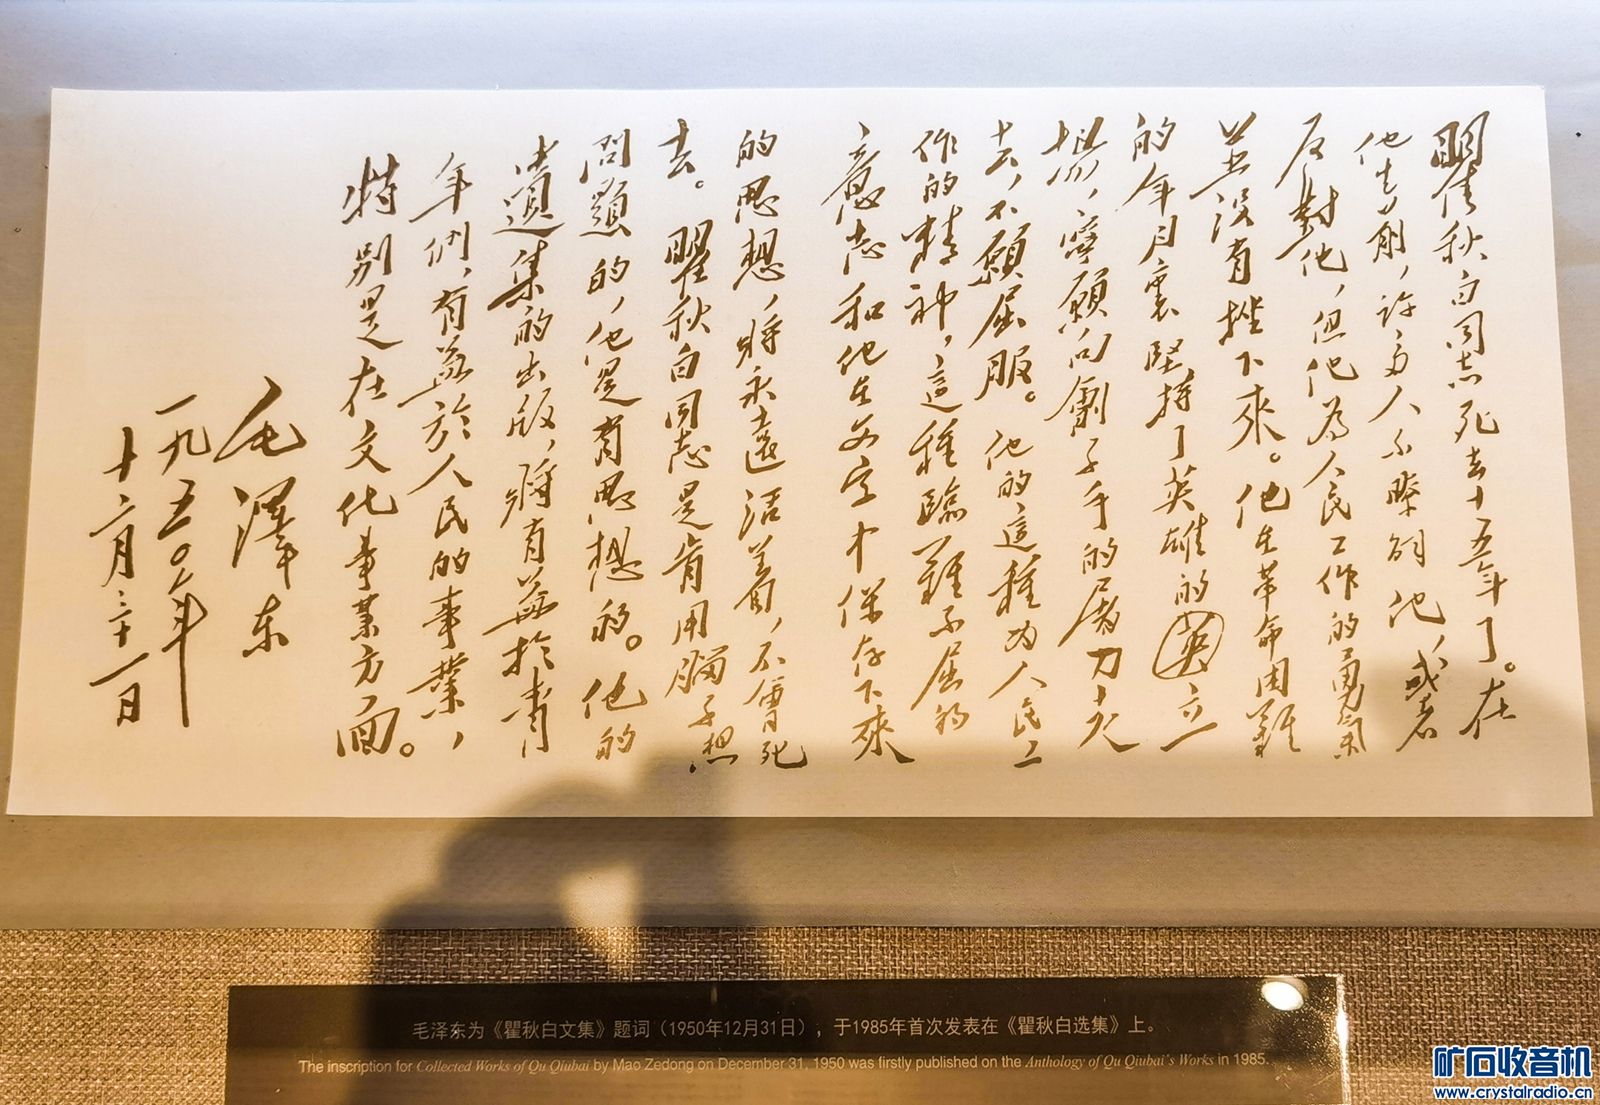 瞿秋白同志死去十五年了。在
他生前，許多人不瞭解他，或者
反對他，但他為人民工作的勇氣
並沒有挫下來。他在革命困難
的年月裏堅持了英雄的英立
場，寧願向劊子手的屠刀走
去，不願屈服。他的這種为人民工
作的精神，這種臨難不屈的
意志和他在文字中保存下來
的思想，將永遠活着，不會死
去。瞿秋白同志是肯用腦子想
問題的，他是有思想的。他的
遺集的出版，將有益於青
年們，有益於人民的事業，
特別是在文化事業方面。
毛澤东
一九五〇年
十二月三十一日
毛泽东为《瞿秋白文集》题词（1950年12月31日），于1985年首次发表在《瞿秋白选集》上。
The inscription for Collected Works of Qu Qiubai by Mao Zedong on December 31, 1950 was firstly published on the Anthology of Qu Qiubai's Works in 1985.
矿石收音机
www.crystalradio.cn